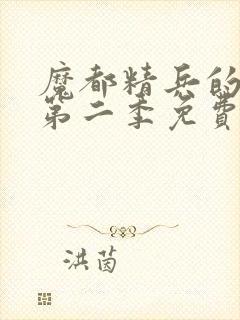 魔都精兵的
第二季免费
洪茵